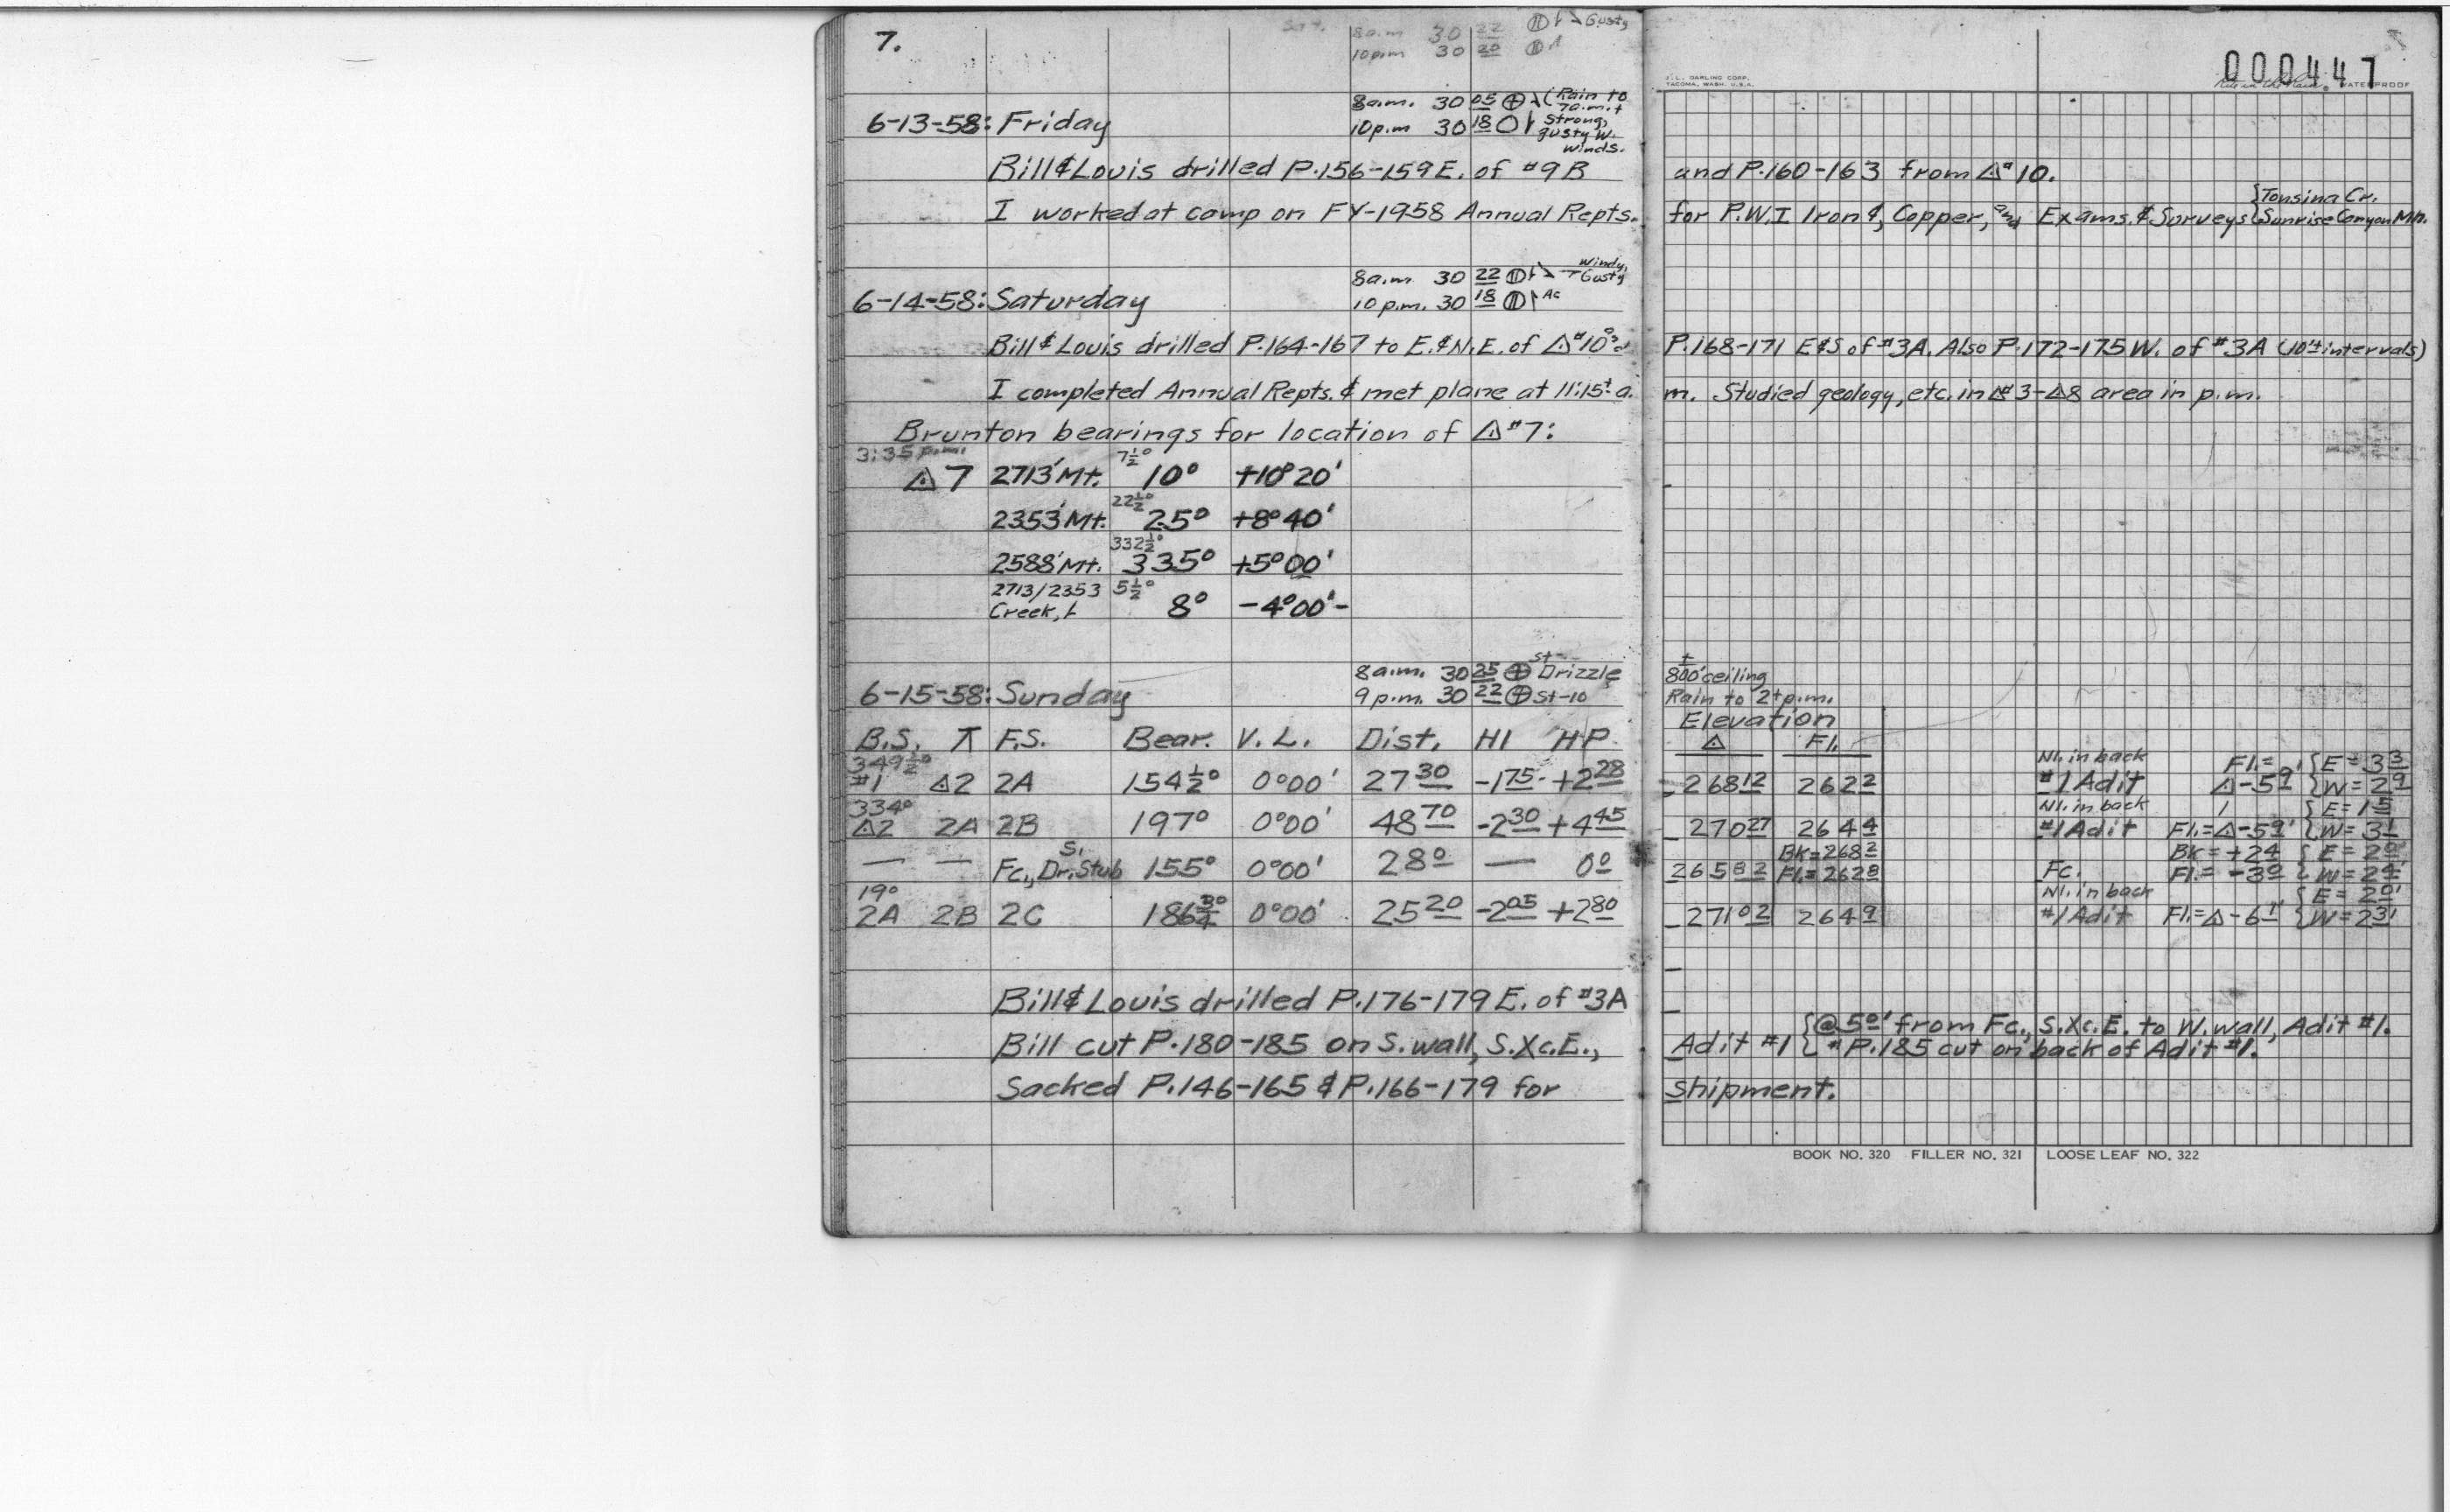 7.
8a.m 30 22 Gusty
10p.m 30 20
000447
J. L. DARLING CORP.
TACOMA, WASH. U.S.A.
Rite in the Rain. WATERPROOF
8a.m. 30 05 ⊕ (Rain to
7a.m. +
6-13-58: Friday
10p.m 30 18 O Strong,
gusty W.
winds.
Bill & Louis drilled P.156-159 E. of #9B and P.160-163 from △#10.
I worked at camp on FY-1958 Annual Repts. for P.W.I Iron &, Copper, and Exams. & Surveys {Tonsina Cr.
Sunrise Canyon Mn.
8a.m 30 22 Windy, Gusty
6-14-58: Saturday
10 p.m. 30 18 Ac
Bill & Louis drilled P.164-167 to E. & N.E. of △#10 and P.168-171 E & S of #3A. Also P.172-175 W. of #3A (10'± intervals)
I completed Annual Repts. & met plane at 11:15± a.m. Studied geology, etc. in △#3-△8 area in p.m.
Brunton bearings for location of △#7:
3:35 p.m.
△7 2713' Mt. 7½° 10° +10°20'
2353' Mt. 22½° 25° +8°40'
2588' Mt. 332½° 335° +5°00'
2713/2353 5½°
Creek, 8° -4°00'-
8a.m. 30 25 ⊕ St- Drizzle ± 800' ceiling
6-15-58: Sunday
9p.m. 30 22 ⊕ St-10 Rain to 2+p.m.
Elevation
B.S. ⊼ F.S. Bear. V.L. Dist. HI HP △ Fl.
349½°
#1 △2 2A 154½° 0°00' 27 30 -1 75 +2 28 268 12 262 2 Nl. in back #1 Adit Fl.= △-5 9' {E=3 3 W=2 9
334°
△2 2A 2B 197° 0°00' 48 70 -2 30 +4 45 270 27 264 4 Nl. in back #1 Adit Fl.=△-5 9' {E=1 5 W=3 1
— — Fc., S. Dr. Stub 155° 0°00' 28 0 — 0 0 265 82 Bk=268 2 Fl.=262 8 Fc. Bk=+2 4 Fl.=-3 0 {E=2 0 W=2 4
19°
2A 2B 2C 186¾° 0°00' 25 20 -2 05 +2 80 271 02 264 9 Nl. in back #1 Adit Fl.=△-6 1' {E=2 0' W=2 3'
Bill & Louis drilled P.176-179 E. of #3A
Bill cut P.180-185 on S. wall, S.Xc.E., Adit #1 {@ 5 0' from Fc., S.Xc.E. to W. wall, Adit #1.
* P.185 cut on back of Adit #1.
Sacked P.146-165 & P.166-179 for shipment.
BOOK NO. 320 FILLER NO. 321 LOOSE LEAF NO. 322